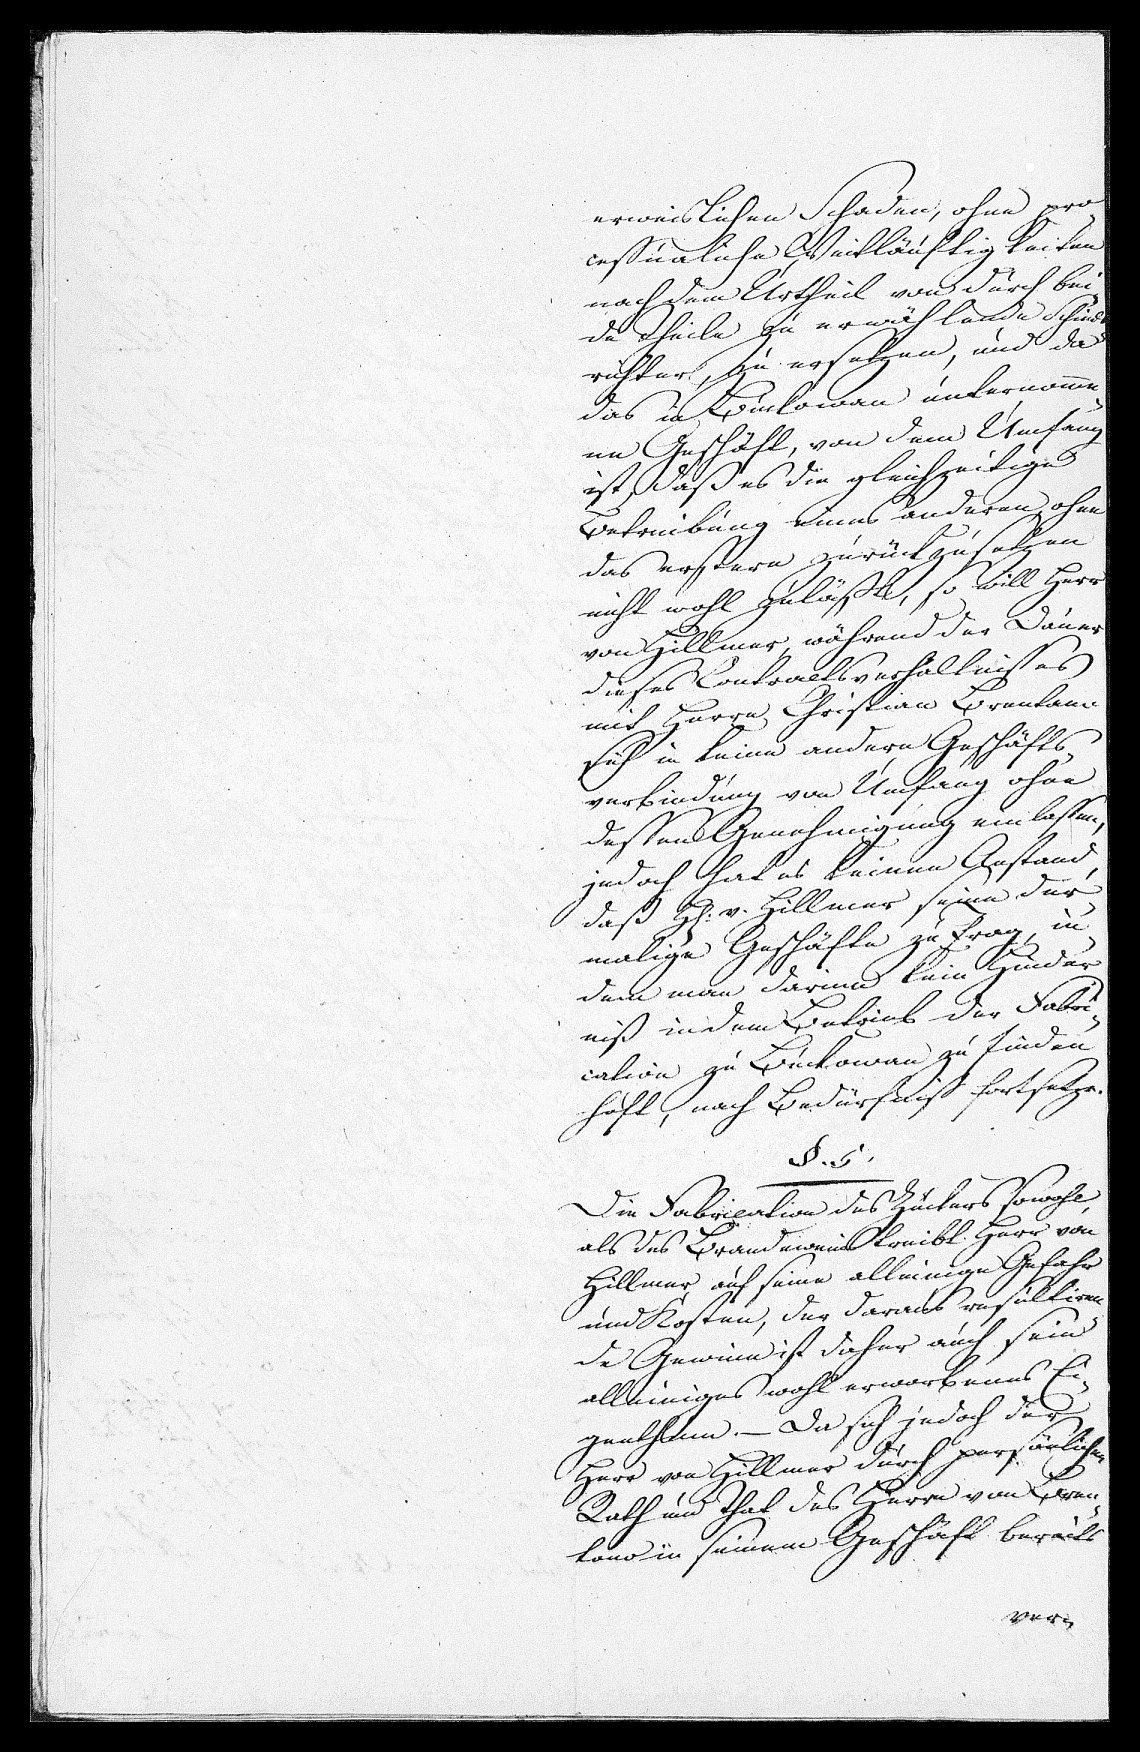 erweislichen Schaden, ohne pro-
cessualische Weitläuftigkeiten
nach dem Urtheil von durch bei-
de Theile zu erwählende Schieds
richter, zu ersetzen, und da
das in Bukowan unternomme-
ne Geschäft, von dem Umfang
ist, daß es die gleichzeitige
Betreibung eines anderen, ohne
das erstere zurückzusetzen
nicht wohl zuläßt, so will Herr
von Hillmer, während der Dauer
dieses Contractsverhältnisses
mit Herrn Christian Brentano
sich in keine andere Geschäfts-
verbindung von Umfang ohne
dessen Genehmigung einlassen,
jedoch hat es keinen Anstand,
daß H: v. Hillmer seine der-
malige Geschäfte zu Prag, in-
dem man darinn kein Hinder
niß in dem Betrieb der Fabri-
cation zu Bukowan zu finden
hoft, nach Bedürfniß fortsetze.
§. 5.
Die Fabrication des Zuckers sowohl,
als des Brandewein treibt Herr von
Hillmer auf seine alleinige Gefahr
und Kosten, der daraus resultiren
de Gewinn ist daher auch sein
alleiniges wohl erworbenes Ei-
genthum. — Da sich jedoch der
Herr von Hillmer durch persönlichen
Rath und That des Herrn von Bren-
tano in seinem Geschäft bereits
ver-